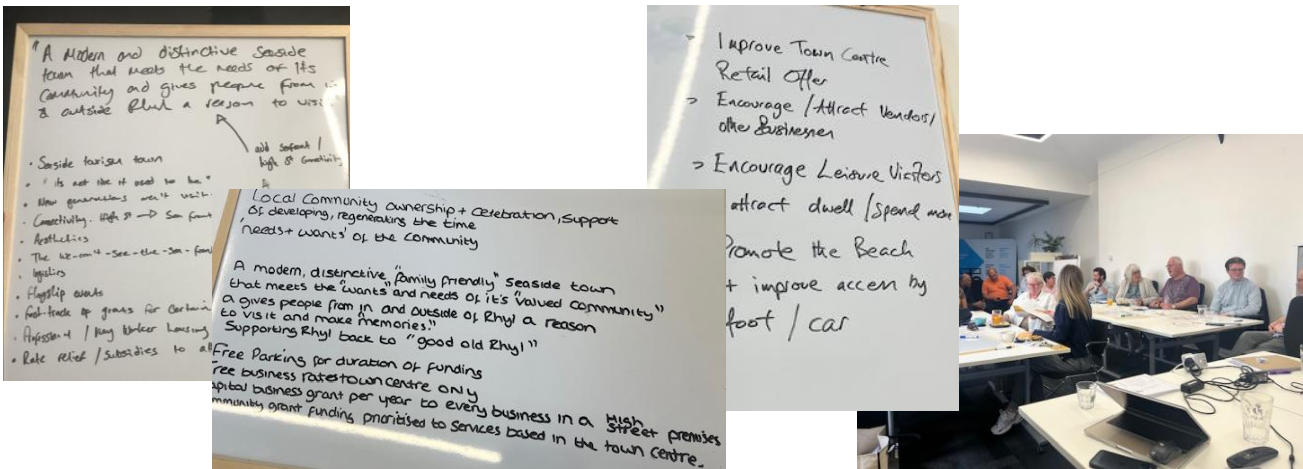 "A modern and distinctive Seaside
town that meets the needs of its
Community and gives people from in
& outside Rhyl a reason to visit
add seafront /
high St Connectivity
• Seaside tourism town
• "its not like it used to be"
• New generations aren't visit
• Connectivity. High St → Sea front
• Aesthetics
• The we-can't-see-the-sea-front
• logistics
• Flagship events
• Fast-track of grants for certain
• Professional / Key Worker housing
• Rate relief / Subsidies to all
Local Community ownership + Celebration, Support
of developing, regenerating the time
'needs + wants' of the community
A modern, distinctive "family friendly" seaside town
that meets the "wants" and needs of it's "valued community"
a gives people from in and outside of Rhyl a reason
to visit and make "memories."
Supporting Rhyl back to "good old Rhyl"
Free Parking for duration of funding
Free business rates town centre only
apital business grant per year to every business in a High
Street premises
mmunity grant funding prioritised to services based in the town centre.
> Improve Town Centre
Retail Offer
> Encourage / Attract Vendors /
other Businesses
> Encourage Leisure Visitors
attract dwell / Spend more
Promote the Beach
+ improve access by
foot / car